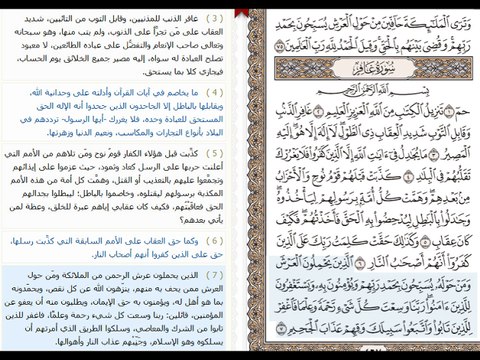 وَتَرَى الْمَلَٰٓئِكَةَ حَآفِّينَ مِنْ حَوْلِ الْعَرْشِ يُسَبِّحُونَ بِحَمْدِ
رَبِّهِمْ وَقُضِيَ بَيْنَهُم بِالْحَقِّ وَقِيلَ الْحَمْدُ لِلَّهِ رَبِّ الْعَٰلَمِينَ ٧٥
سُورَةُ غَافِرٍ
بِسْمِ اللَّهِ الرَّحْمَٰنِ الرَّحِيمِ
حمٓ ١ تَنزِيلُ الْكِتَٰبِ مِنَ اللَّهِ الْعَزِيزِ الْعَلِيمِ ٢ غَافِرِ الذَّنۢبِ
وَقَابِلِ التَّوْبِ شَدِيدِ الْعِقَابِ ذِي الطَّوْلِ لَآ إِلَٰهَ إِلَّا هُوَ إِلَيْهِ
الْمَصِيرُ ٣ مَا يُجَٰدِلُ فِيٓ ءَايَٰتِ اللَّهِ إِلَّا الَّذِينَ كَفَرُوا فَلَا يَغْرُرْكَ
تَقَلُّبُهُمْ فِي الْبِلَٰدِ ٤ كَذَّبَتْ قَبْلَهُمْ قَوْمُ نُوحٍ وَالْأَحْزَابُ
مِنۢ بَعْدِهِمْ وَهَمَّتْ كُلُّ أُمَّةٍۭ بِرَسُولِهِمْ لِيَأْخُذُوهُ
وَجَٰدَلُوا بِالْبَٰطِلِ لِيُدْحِضُوا بِهِ الْحَقَّ فَأَخَذْتُهُمْ فَكَيْفَ
كَانَ عِقَابِ ٥ وَكَذَٰلِكَ حَقَّتْ كَلِمَتُ رَبِّكَ عَلَى الَّذِينَ
كَفَرُوٓا أَنَّهُمْ أَصْحَٰبُ النَّارِ ٦ الَّذِينَ يَحْمِلُونَ الْعَرْشَ
وَمَنْ حَوْلَهُ يُسَبِّحُونَ بِحَمْدِ رَبِّهِمْ وَيُؤْمِنُونَ بِهِ وَيَسْتَغْفِرُونَ
لِلَّذِينَ ءَامَنُوا رَبَّنَا وَسِعْتَ كُلَّ شَيْءٍ رَّحْمَةً وَعِلْمًا فَاغْفِرْ
لِلَّذِينَ تَابُوا وَاتَّبَعُوا سَبِيلَكَ وَقِهِمْ عَذَابَ الْجَحِيمِ ٧
(3) غافر الذنب للمذنبين، وقابل التوب من التائبين، شديد
العقاب على مَن تجرَّأ على الذنوب، ولم يتب منها، وهو سبحانه
وتعالى صاحب الإنعام والتفضُّل على عباده الطائعين، لا معبود
تصلح العبادة له سواه، إليه مصير جميع الخلائق يوم الحساب،
فيجازي كلا بما يستحق.
(4) ما يخاصم في آيات القرآن وأدلته على وحدانية الله،
ويقابلها بالباطل إلا الجاحدون الذين جحدوا أنه الإله الحق
المستحق للعبادة وحده، فلا يغررك -أيها الرسول- ترددهم في
البلاد بأنواع التجارات والمكاسب، ونعيم الدنيا وزهرتها.
(5) كذَّبت قبل هؤلاء الكفار قومُ نوح ومَن تلاهم من الأمم التي
أعلنت حربها على الرسل كعاد وثمود، حيث عزموا على إيذائهم
وتجمَّعوا عليهم بالتعذيب أو القتل، وهمَّت كل أمة من هذه الأمم
المكذبة برسولهم ليقتلوه، وخاصموا بالباطل؛ ليبطلوا بجدالهم
الحق فعاقَبْتُهم، فكيف كان عقابي إياهم عبرة للخلق، وعظة لمن
يأتي بعدهم؟
(6) وكما حق العقاب على الأمم السابقة التي كذَّبت رسلها،
حق على الذين كفروا أنهم أصحاب النار.
(7) الذين يحملون عرش الرحمن من الملائكة ومَن حول
العرش ممن يحف به منهم، ينزِّهون الله عن كل نقص، ويحمَدونه
بما هو أهل له، ويؤمنون به حق الإيمان، ويطلبون منه أن يعفو عن
المؤمنين، قائلين: ربنا وسعت كل شيء رحمة وعلمًا، فاغفر للذين
تابوا من الشرك والمعاصي، وسلكوا الطريق الذي أمرتهم أن
يسلكوه وهو الإسلام، وجَنِّبْهم عذاب النار وأهوالها.